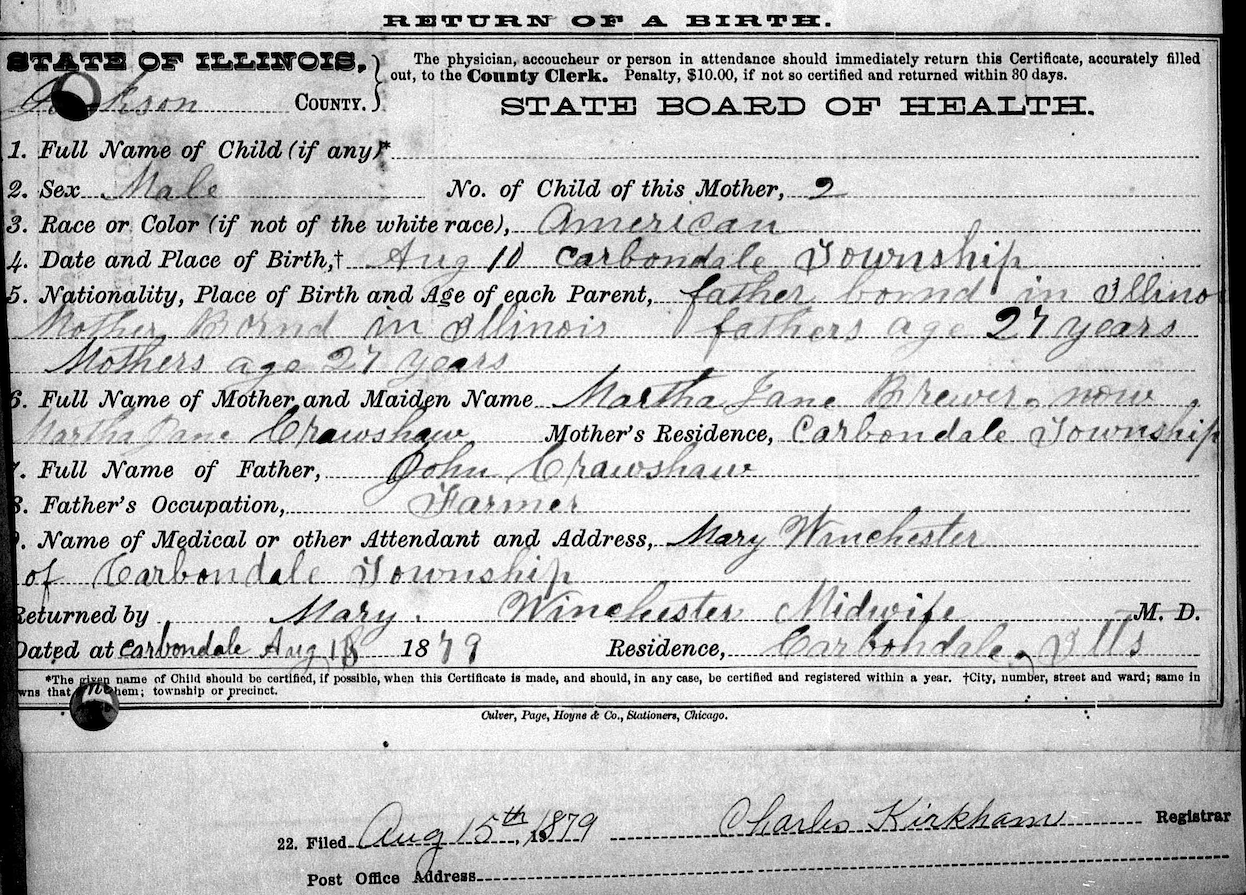 RETURN OF A BIRTH.
STATE OF ILLINOIS,
The physician, accoucheur or person in attendance should immediately return this Certificate, accurately filled
out, to the County Clerk. Penalty, $10.00, if not so certified and returned within 30 days.
kson COUNTY.
STATE BOARD OF HEALTH.
1. Full Name of Child (if any)*
2. Sex Male No. of Child of this Mother, 2
3. Race or Color (if not of the white race), American
4. Date and Place of Birth,† Aug 10 Carbondale Township
5. Nationality, Place of Birth and Age of each Parent, father bornd in Illino
Mother Bornd in Illinois fathers age 27 years
Mothers age 27 years
6. Full Name of Mother and Maiden Name Martha Jane Brewer, now
Martha Jane Crawshaw Mother's Residence, Carbondale Township
7. Full Name of Father, John Crawshaw
8. Father's Occupation, Farmer
9. Name of Medical or other Attendant and Address, Mary Winchester
of Carbondale Township
Returned by Mary. Winchester Midwife M. D.
Dated at Carbondale Aug 1879 Residence, Carbondale, Ills
*The given name of Child should be certified, if possible, when this Certificate is made, and should, in any case, be certified and registered within a year. †City, number, street and ward; same in
wns that hem; township or precinct.
Culver, Page, Hoyne & Co., Stationers, Chicago.
22. Filed Aug 15th, 1879 Charles Kirkham Registrar
Post Office Address